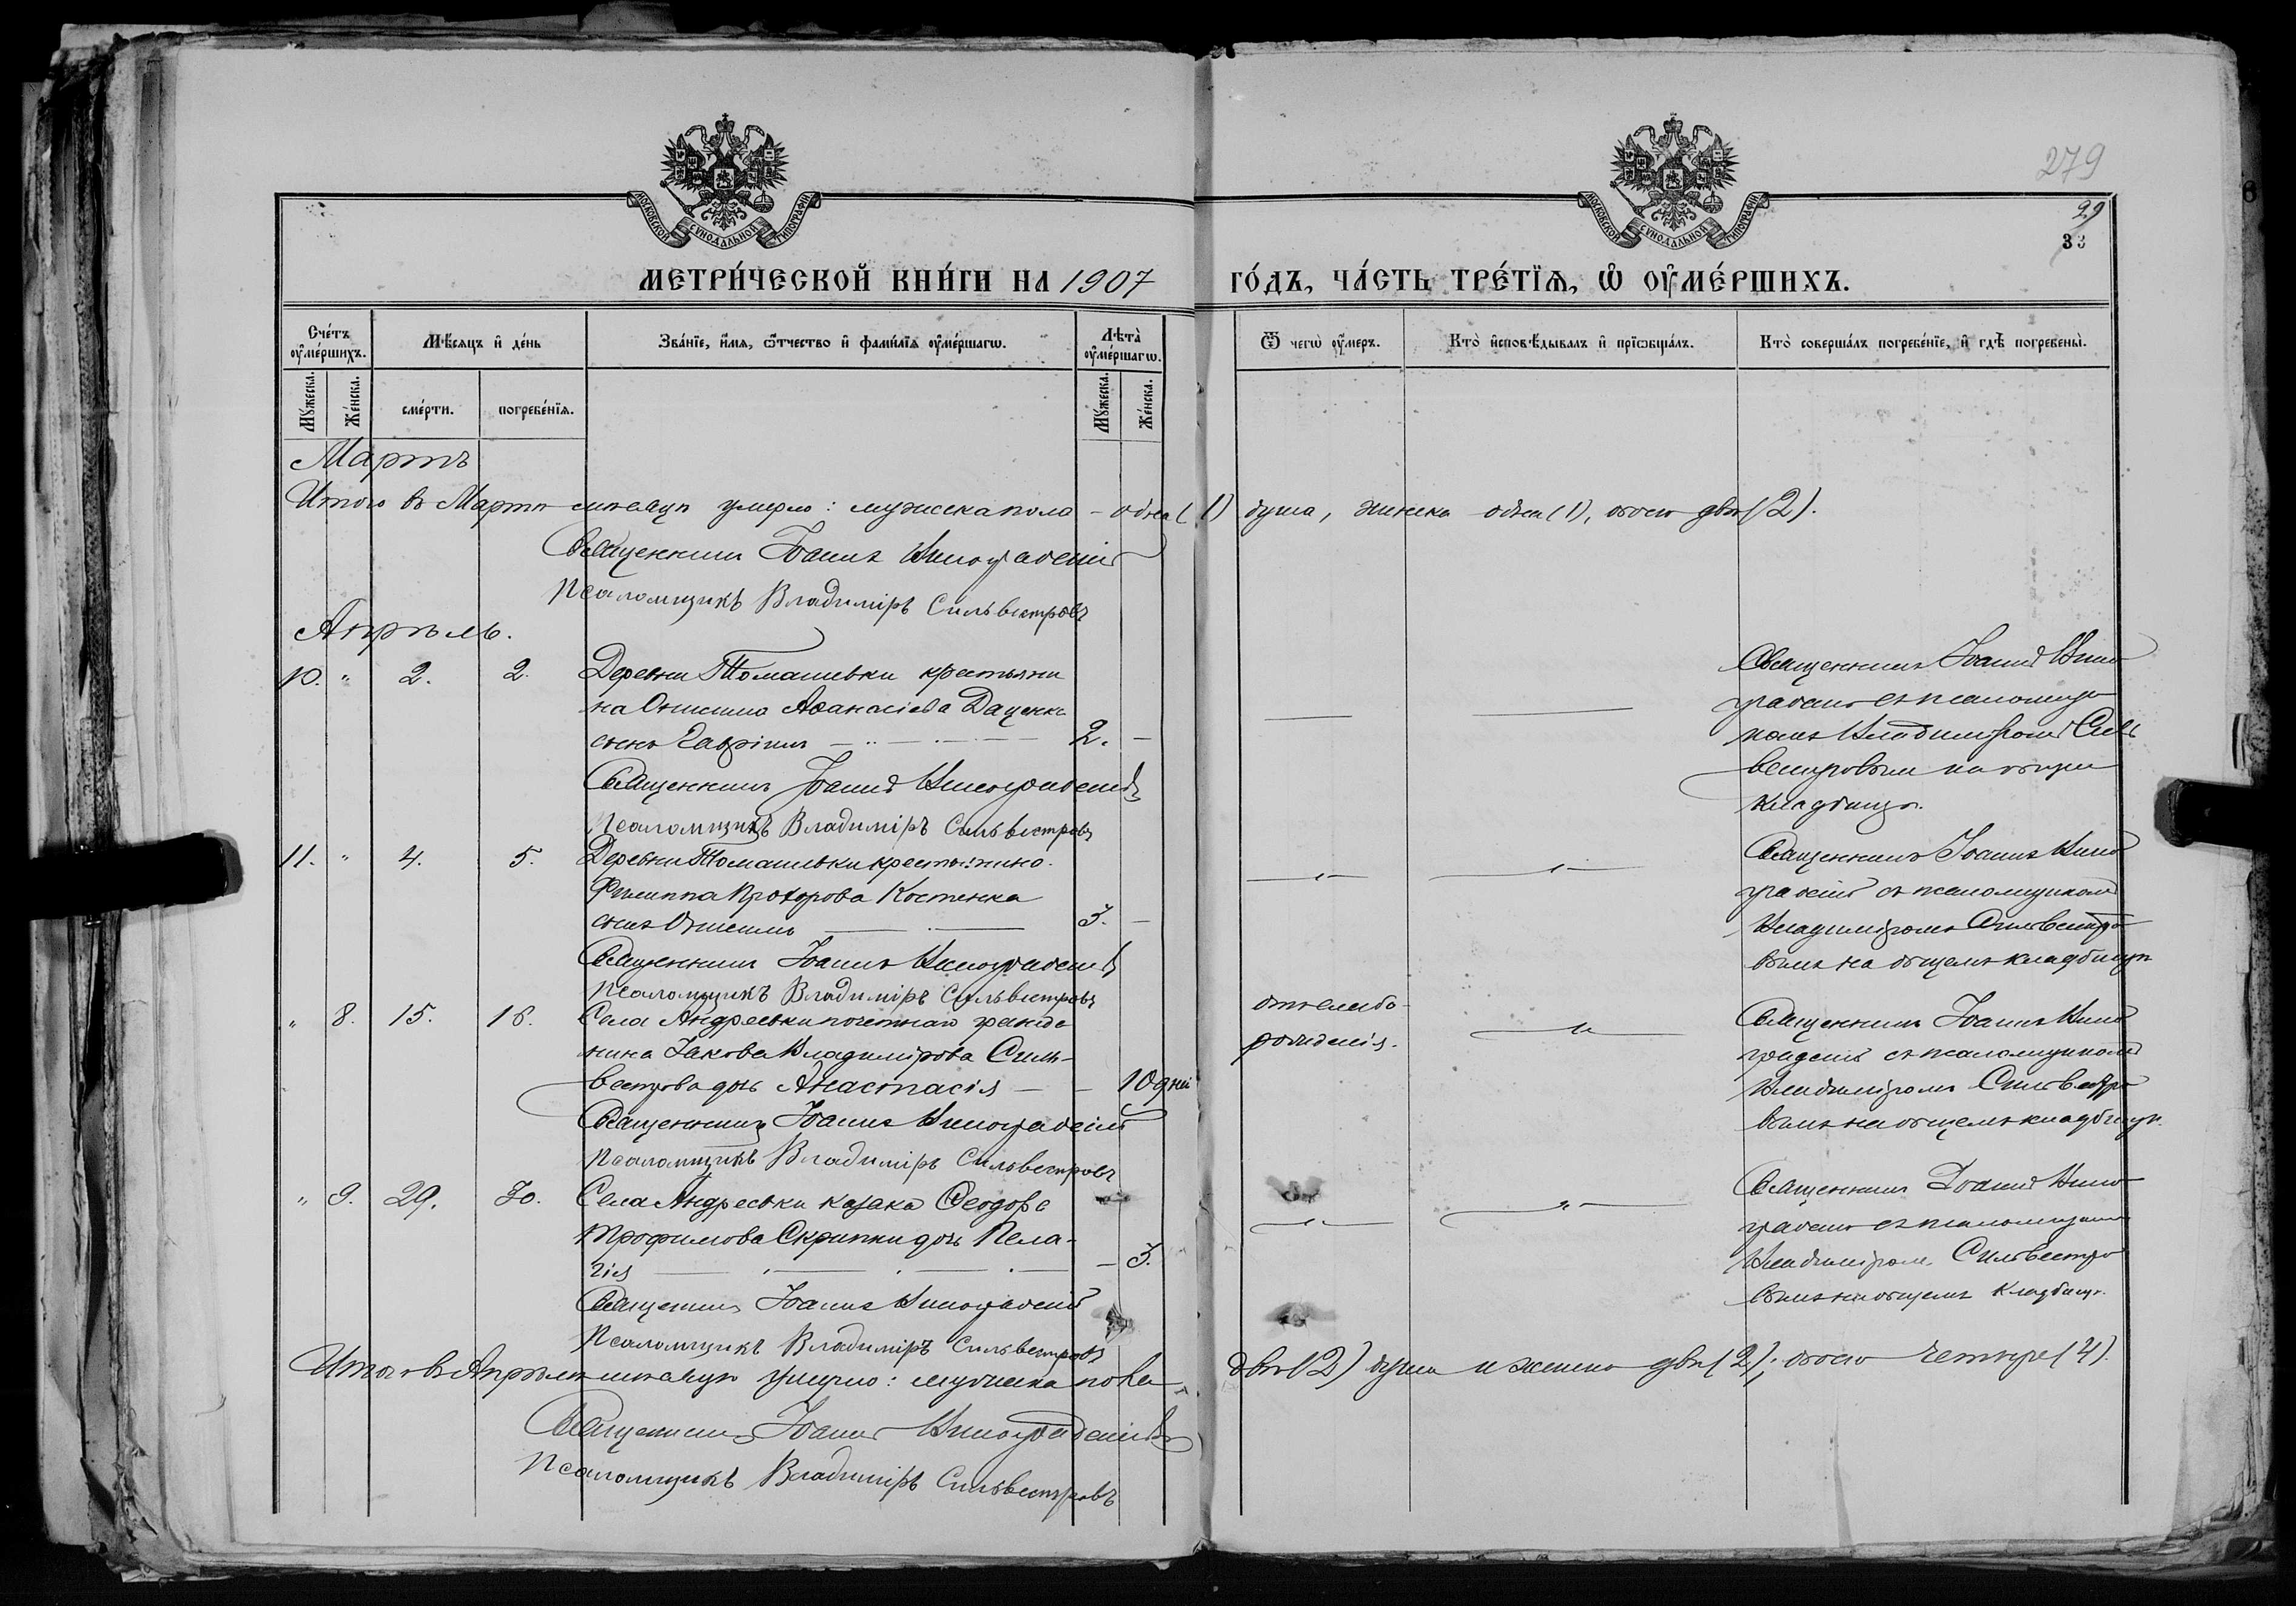 279
29
33
МОСКОВСКОЙ СУНОДАЛЬНОЙ ТИПОГРАФІИ
МОСКОВСКОЙ СУНОДАЛЬНОЙ ТИПОГРАФІИ
МЕТРИ́ЧЕСКОЙ КНИ́ГИ НА 1907 ГО́ДЪ, ЧА́СТЬ ТРЕ́ТІЯ, Ѡ ОУМЕ́РШИХЪ.
Сче́тъ оуме́ршихъ.
Мѣ́сяцъ и де́нь
Зва́нїе, и́мя, ѻ́тчество и фами́лїя оуме́ршагѡ.
Лѣта̀ оуме́ршагѡ.
Ѿ чегѡ̀ оу́меръ.
Кто̀ исповѣ́дывалъ и прїѡбща́лъ.
Кто̀ соверша́лъ погребе́нїе, и гдѣ̀ погребены̀.
Му́жеска.
Же́нска.
сме́рти.
погребе́нїя.
Му́жеска.
Же́нска.
Мартъ
Итого въ Мартѣ мѣсяцѣ умерло: мужска пола – одна (1) душа, женска одна (1), обоего двѣ (2).
Священникъ Іоаннъ
Псаломщикъ Владиміръ Сильвестровъ
Апрѣль.
10. " 2. 2. Деревни Томашевки крестьяни
на Онисима Аѳанасіева Даценка
сынъ Гавріилъ 2. –
Священникъ Іоаннъ
съ псаломщи
комъ Владиміромъ Силь
вестровымъ на общемъ
кладбищѣ.
Священникъ Іоаннъ
Псаломщикъ Владиміръ Сильвестровъ
11. " 4. 5. Деревни Томашевки крестьянина
Филиппа Прохорова Костенка
сынъ Онисимъ 3. –
Священникъ Іоаннъ
съ псаломщикомъ
Владиміромъ Сильвестро
вымъ на общемъ кладбищѣ
Священникъ Іоаннъ
Псаломщикъ Владиміръ Сильвестровъ
" 8. 15. 16. Села Андреевки почетнаго гражда
нина Іакова Владимірова Силь-
вестрова дочь Анастасія – 10 дней
отъ слабо-
рожденія.
Священникъ Іоаннъ
съ псаломщикомъ
Владиміромъ Сильвестро
вымъ на общемъ кладбищѣ.
Священникъ Іоаннъ
Псаломщикъ Владиміръ Сильвестровъ
" 9. 29. 30. Села Андреевки казака Ѳеодора
Трофимова Скрипки дочь Пела-
гія – 3.
Священникъ Іоаннъ
съ псаломщикомъ
Владиміромъ Сильвестро
вымъ на общемъ кладбищѣ.
Священникъ Іоаннъ
Псаломщикъ Владиміръ Сильвестровъ
Итого въ Апрѣлѣ мѣсяцѣ умерло: мужска пола двѣ (2) души и женска двѣ (2), обоего четыре (4).
Священникъ Іоаннъ
Псаломщикъ Владиміръ Сильвестровъ